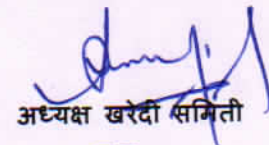 अध्यक्ष खरेदी समिती